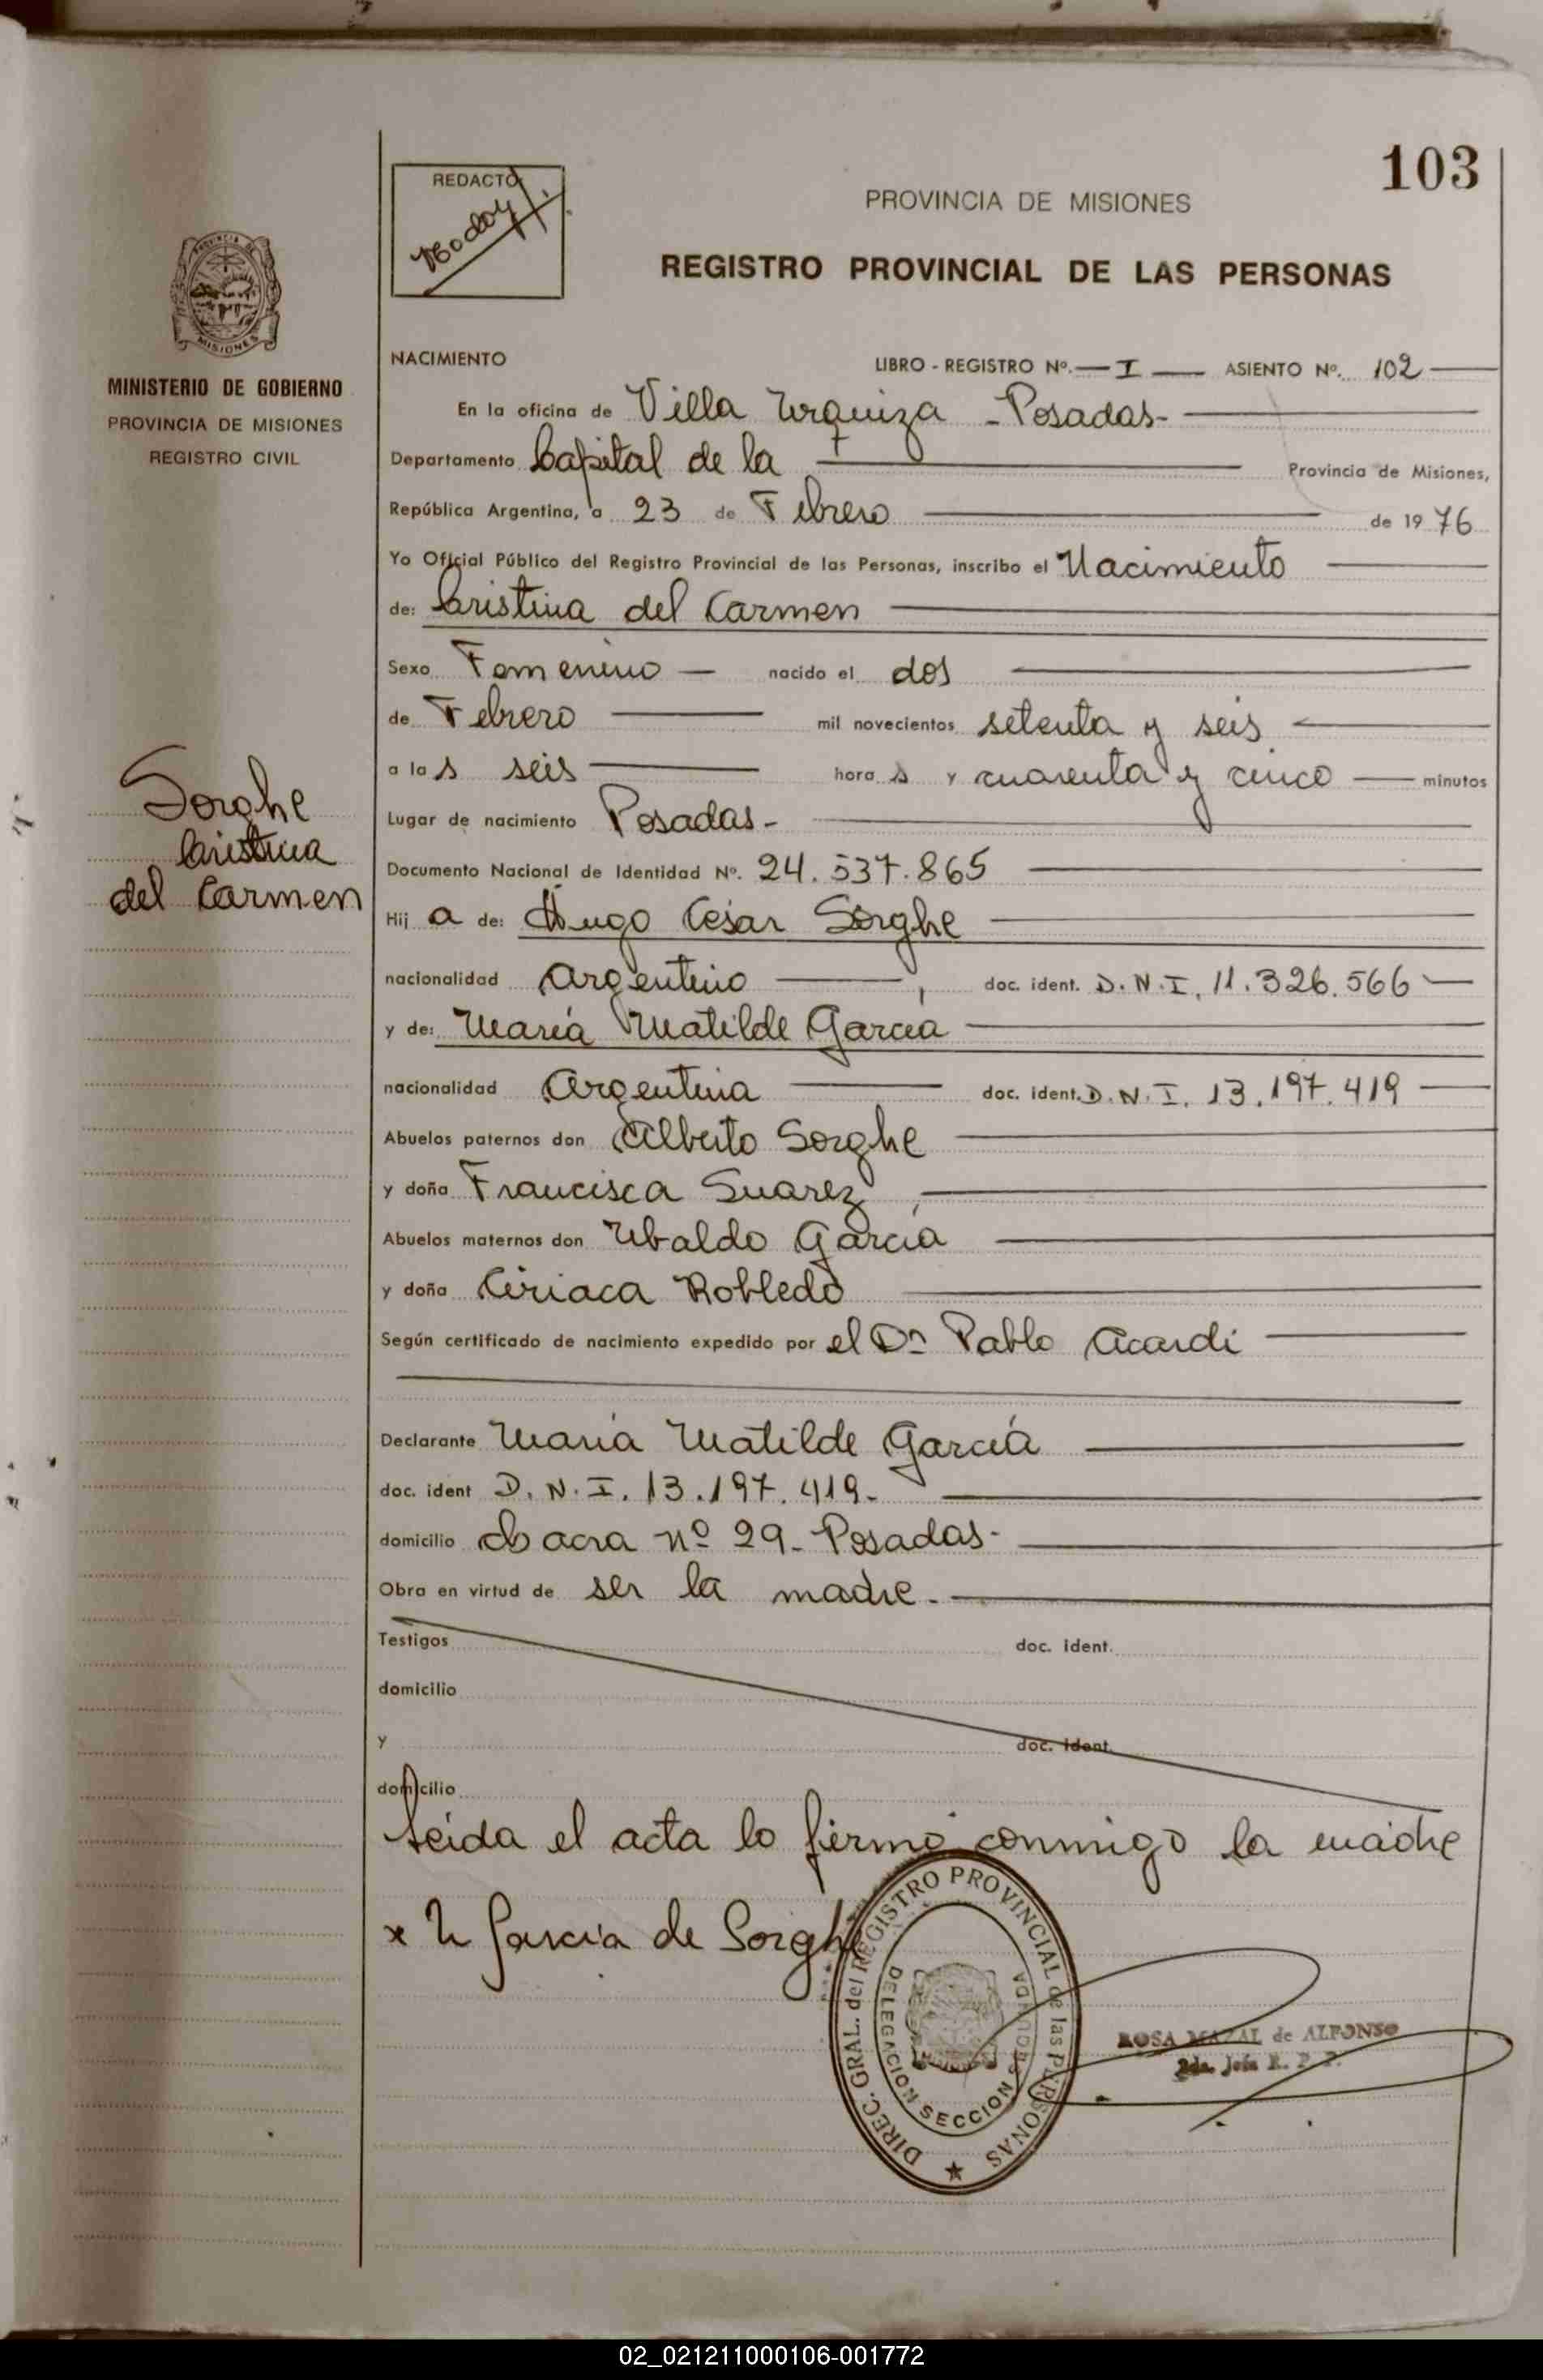 103
REDACTO
Modoy
PROVINCIA DE MISIONES
REGISTRO PROVINCIAL DE LAS PERSONAS
PROVINCIA DE
MISIONES
MINISTERIO DE GOBIERNO
PROVINCIA DE MISIONES
REGISTRO CIVIL
Sorghe
Cristina
del Carmen
NACIMIENTO LIBRO - REGISTRO Nº. I ASIENTO Nº. 102
En la oficina de Villa Urquiza - Posadas-
Departamento Capital de la Provincia de Misiones,
República Argentina, a 23 de Febrero de 1976
Yo Oficial Público del Registro Provincial de las Personas, inscribo el Nacimiento
de: Cristina del Carmen
Sexo Femenino nacido el dos
de Febrero mil novecientos setenta y seis
a las seis horas y cuarenta y cinco minutos
Lugar de nacimiento Posadas-
Documento Nacional de Identidad Nº. 24.537.865
Hija de: Hugo César Sorghe
nacionalidad Argentino, doc. ident. D.N.I. 11.326.566
y de: María Matilde García
nacionalidad Argentina doc. ident. D.N.I. 13.197.419
Abuelos paternos don Alberto Sorghe
y doña Francisca Suarez,
Abuelos maternos don Ubaldo García
y doña Ciriaca Robledo
Según certificado de nacimiento expedido por el Dr Pablo Acardi
Declarante María Matilde García
doc. ident D.N.I. 13.197.419-
domicilio Chacra nº 29- Posadas-
Obra en virtud de ser la madre.
Testigos doc. ident.
domicilio
y doc. ident.
domicilio
Leida el acta lo firmó conmigo la madre
x M García de Sorghe
DIREC. GRAL. del REGISTRO PROVINCIAL de las PERSONAS
DELEGACION SECCION SEGUNDA
ROSA MAZAL de ALFONSO
2da. Jefa R. P. P.
02_021211000106-001772